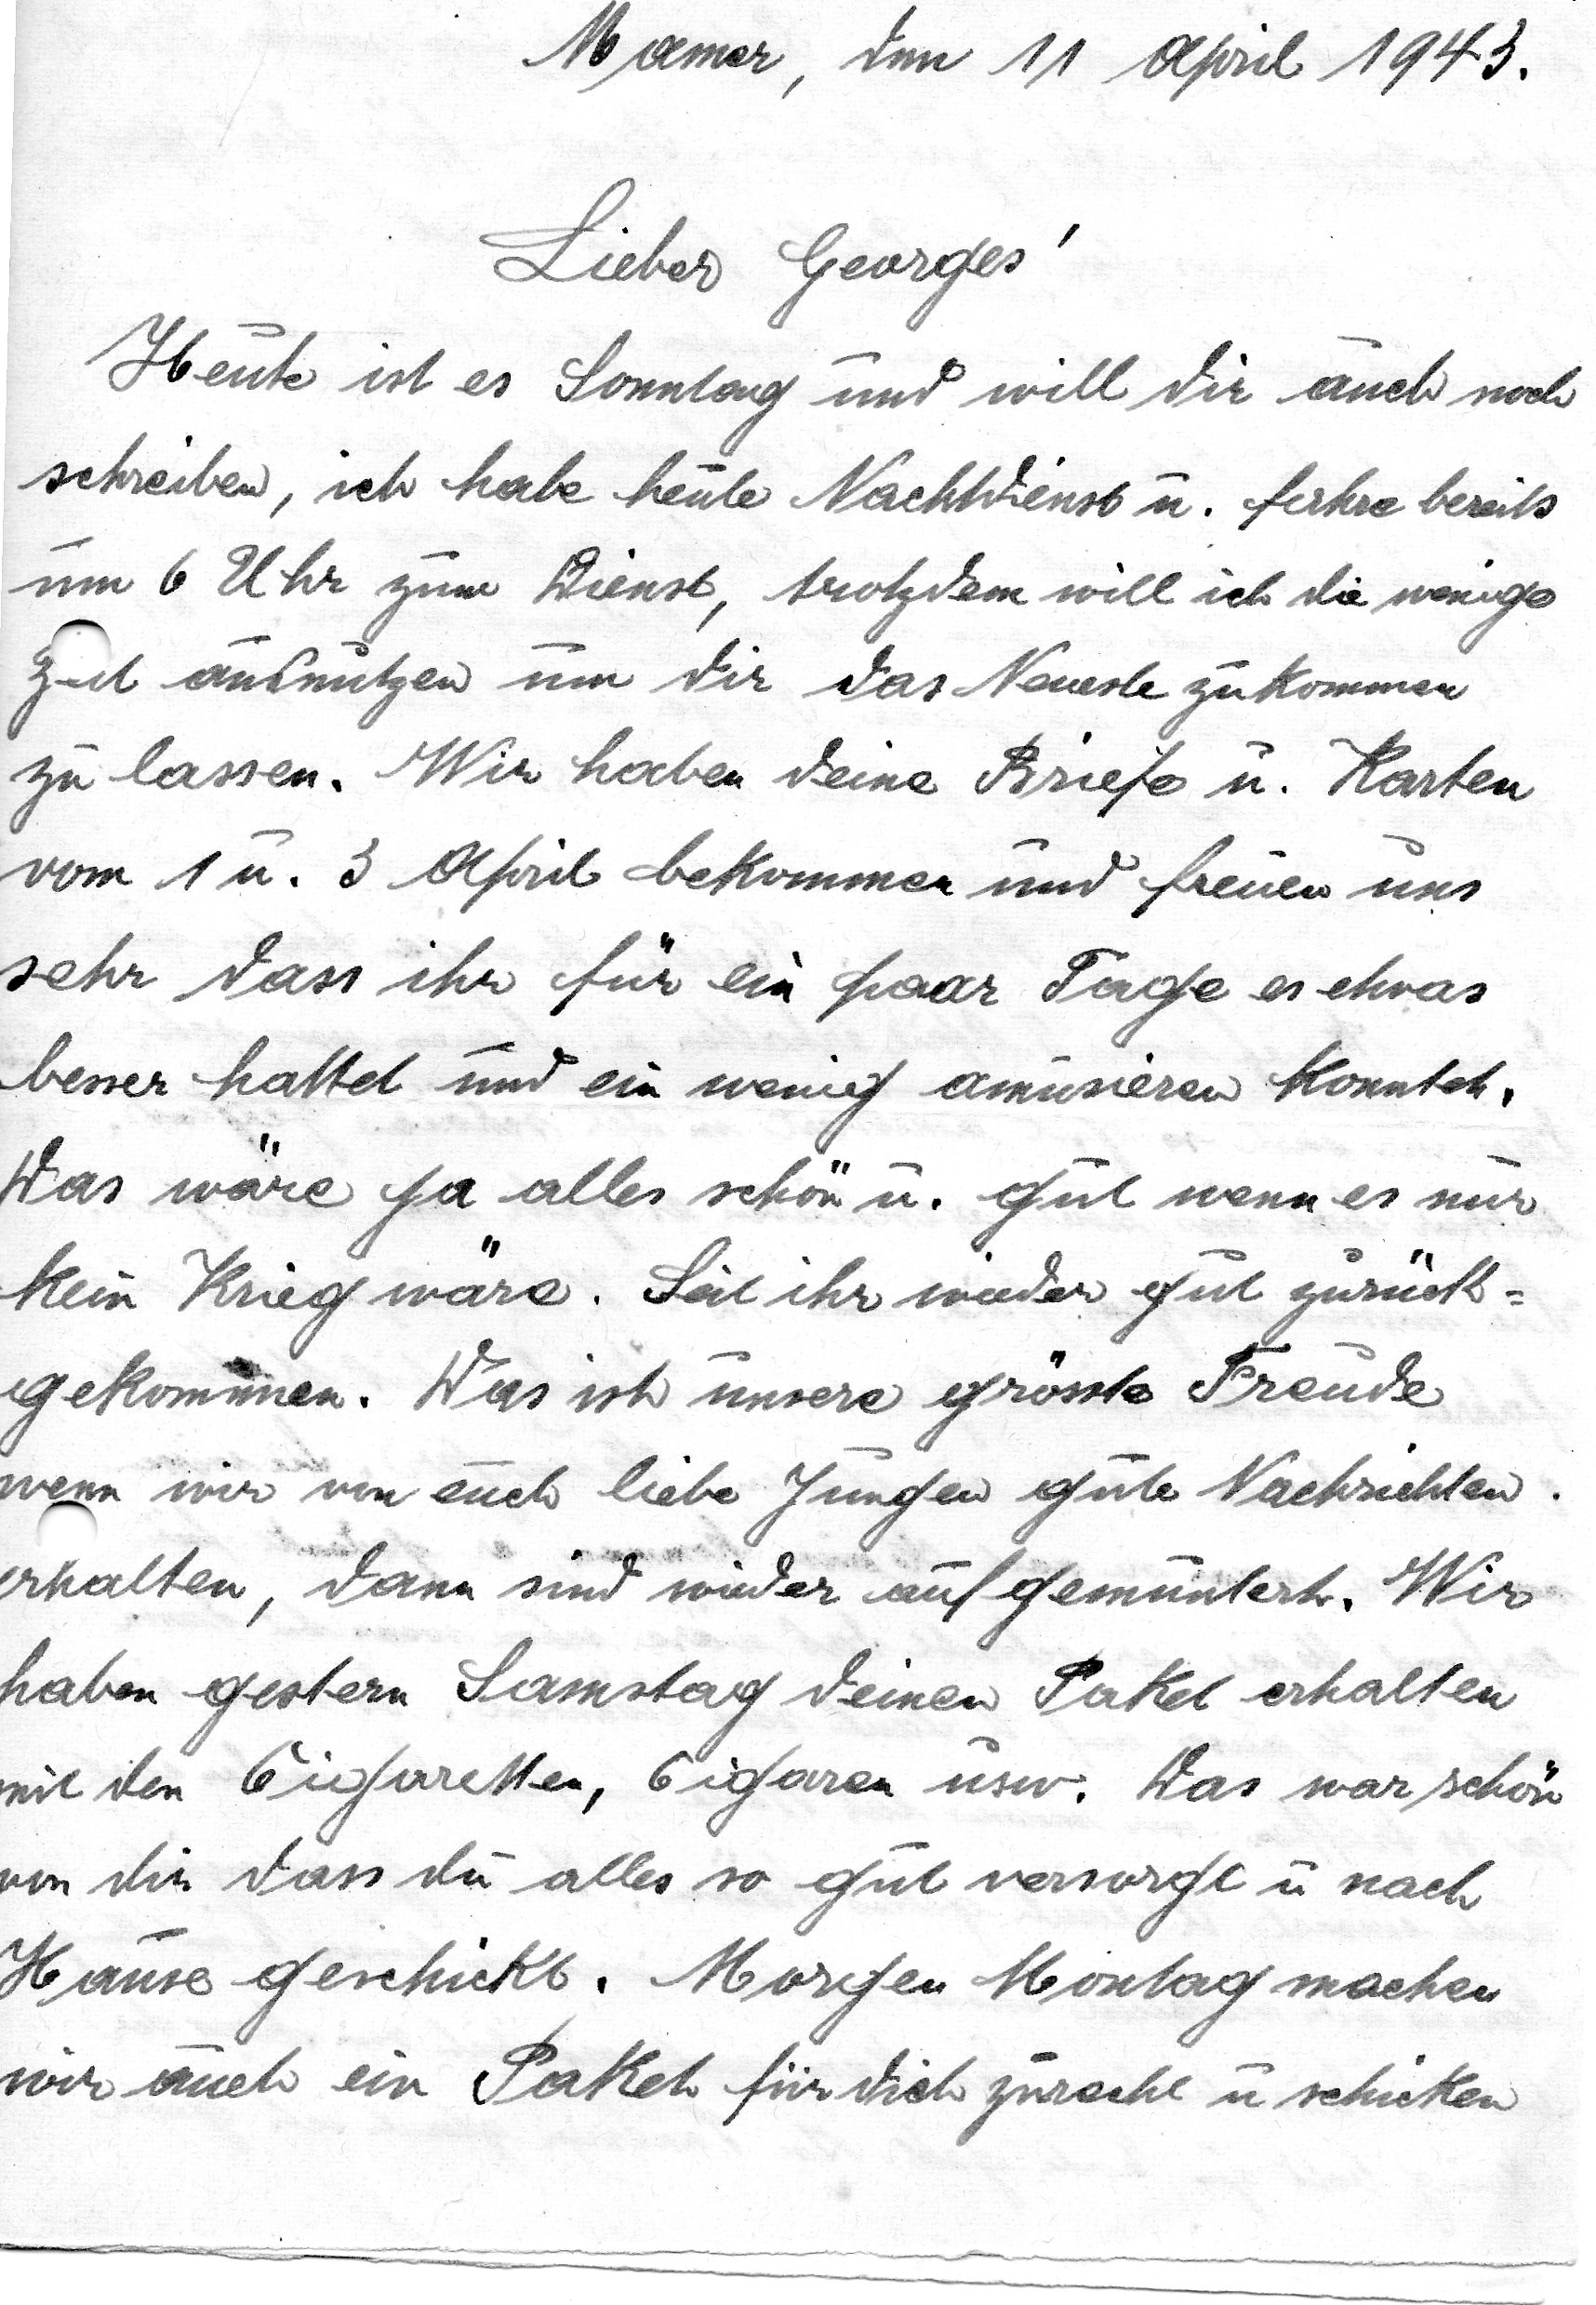 Mamer, den 11 April 1943.
Lieber Georges!
Heute ist es Sonntag und will dir auch noch
schreiben, ich habe heute Nachtdienst u. fahre bereits
um 6 Uhr zum Dienst, trotzdem will ich die wenige
Zeit ausnutzen um dir das Neueste zukommen
zu lassen. Wir haben deine Briefe u. Karten
vom 1 u. 3 April bekommen und freuen uns
sehr dass ihr für ein paar Tage es etwas
besser hattet und ein wenig amusieren konntet.
Das wäre ja alles schön u. gut wenn es nur
kein Krieg wäre. Seit ihr wieder gut zurück=
gekommen. Das ist unsere grösste Freude
wenn wir von euch liebe Jungen gute Nachrichten
erhalten, dann sind wieder aufgemuntert. Wir
haben gestern Samstag deinen Paket erhalten
mit den Cigaretten, Cigaren usw. Das war schön
von dir dass du alles so gut versorgt u nach
Hause geschickt. Morgen Montag machen
wir auch ein Paket für dich zurecht u schicken